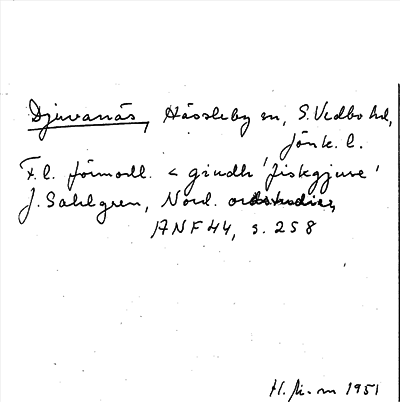 Djuvanäs, Hässleby sn, S. Vedbo hd,
Jönk. l.
F.l. förmodl. < giudh 'fiskgjuse'
J. Sahlgren, Nord. ordstudier,
ANF 44, s. 258
1951